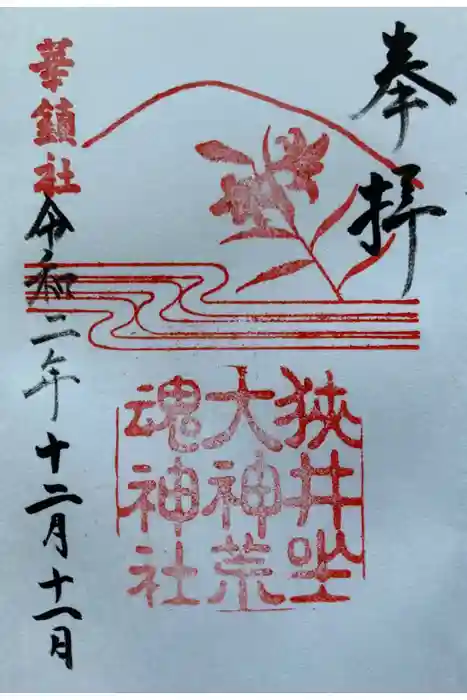 奉拝
狭井坐
大神荒
魂神社
華鎮社
令和二年十二月十一日